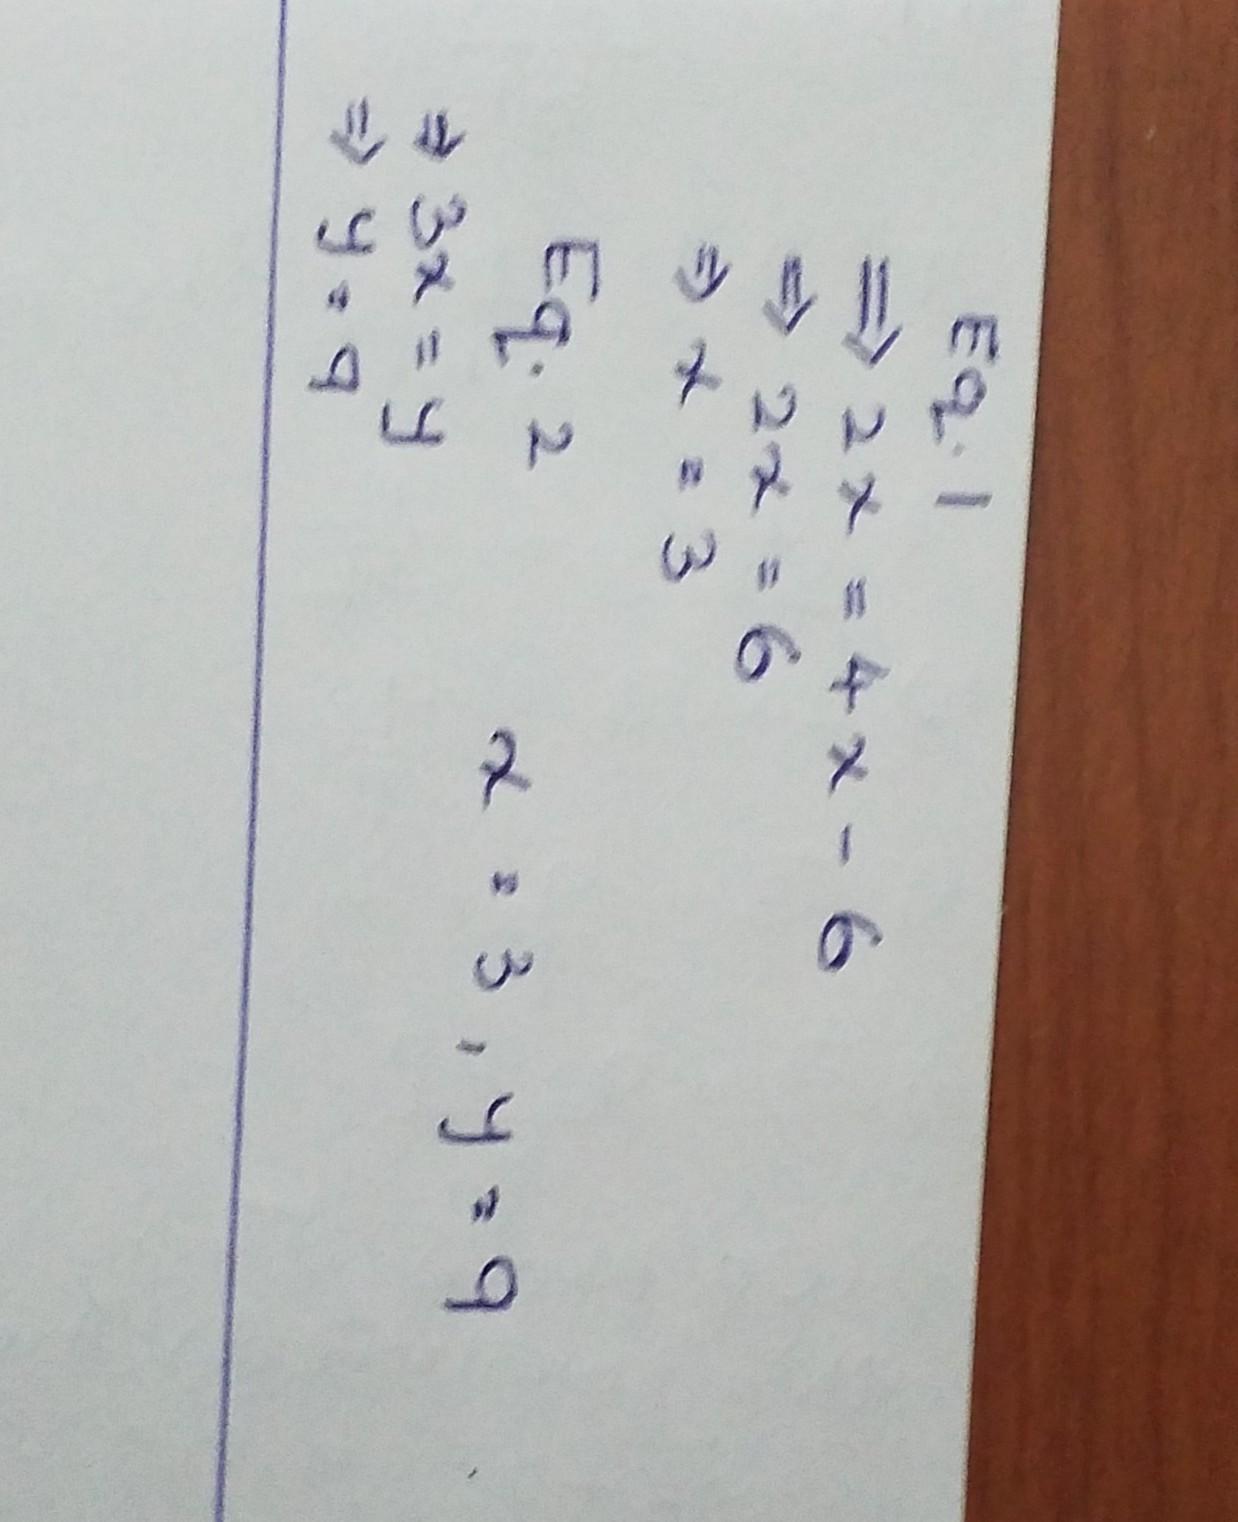 Eq. 1
⇒ 2x = 4x - 6
⇒ 2x = 6
⇒ x = 3
Eq. 2
⇒ 3x = y
⇒ y = 9
x = 3, y = 9